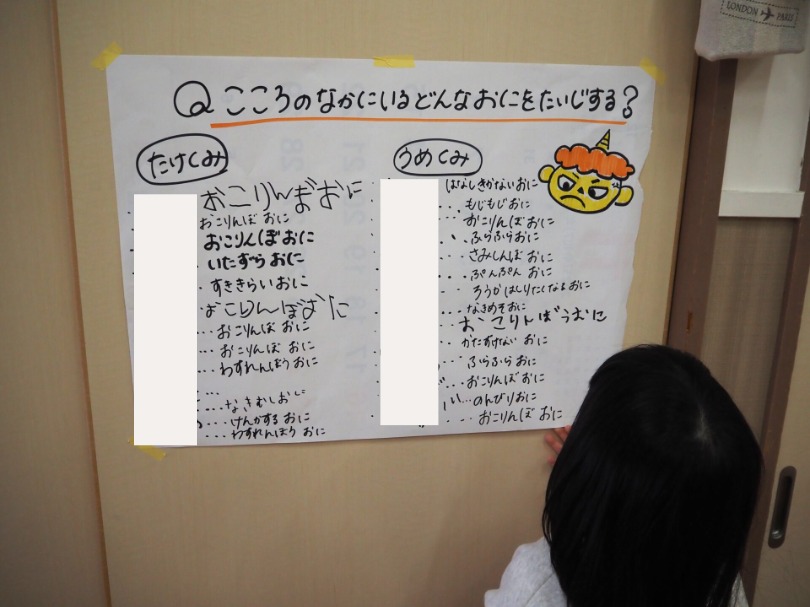 LONDON PARIS
Q こころのなかにいるどんなおにをたいじする?
たけくみ
おこりんぼおに
おこりんぼ おに
おこりんぼおに
いたずら おに
すききらい おに
おこりんぼおに
...おこりんぼ おに
...おこりんぼ おに
...わすれんぼう おに
...
...なきむしおに
...けんかする おに
...わすれんぼう おに
うめくみ
はなしきかない おに
...もじもじ おに
おこりんぼ おに
ふらふら おに
...さみしんぼ おに
...ぷんぷん おに
ろうかはしりたくなる おに
...なきめそ おに
おこりんぼうおに
かたずけない おに
...ふらふら おに
...おこりんぼ おに
...のんびり おに
...おこりんぼ おに